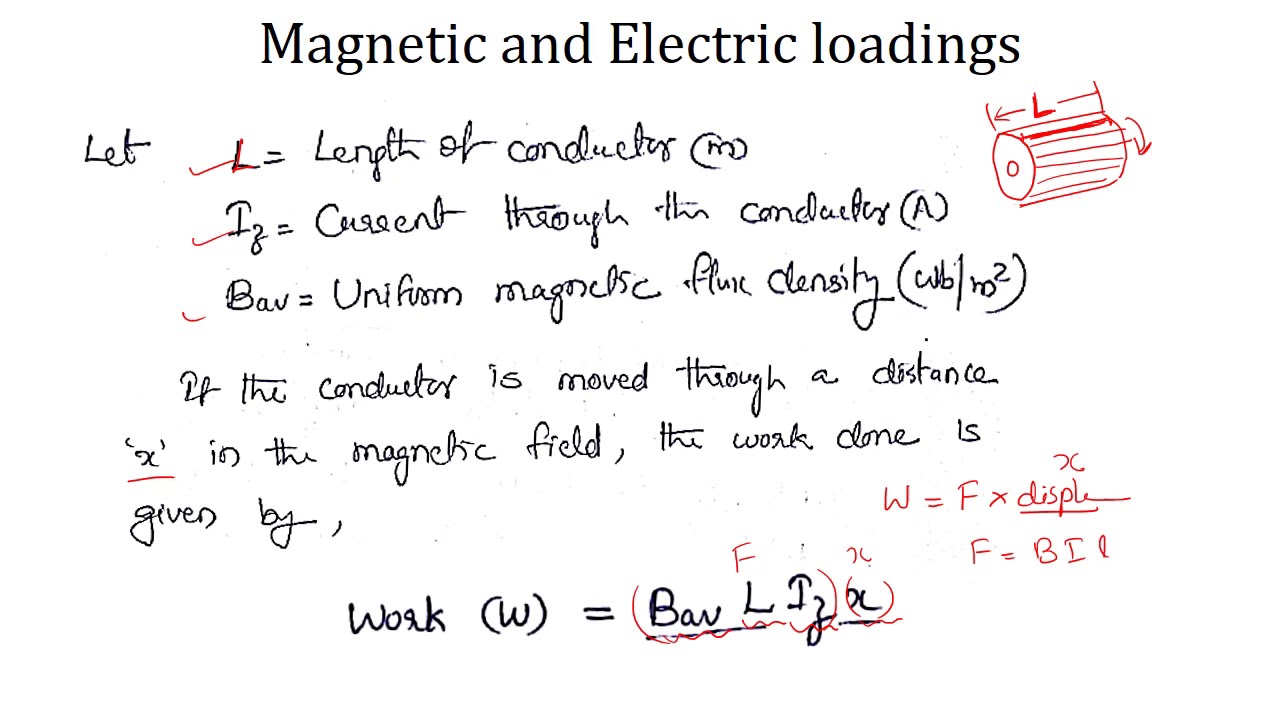 Magnetic and Electric loadings
L
Let L = Length of conductor (m)
Iz = Current through the conductor (A)
Bav = Uniform magnetic flux density (Wb/m²)
If the conductor is moved through a distance
'x' in the magnetic field, the work done is
given by,
x
W = F × disple
F = B I l
F x
Work (W) = (Bav L Iz) (x)